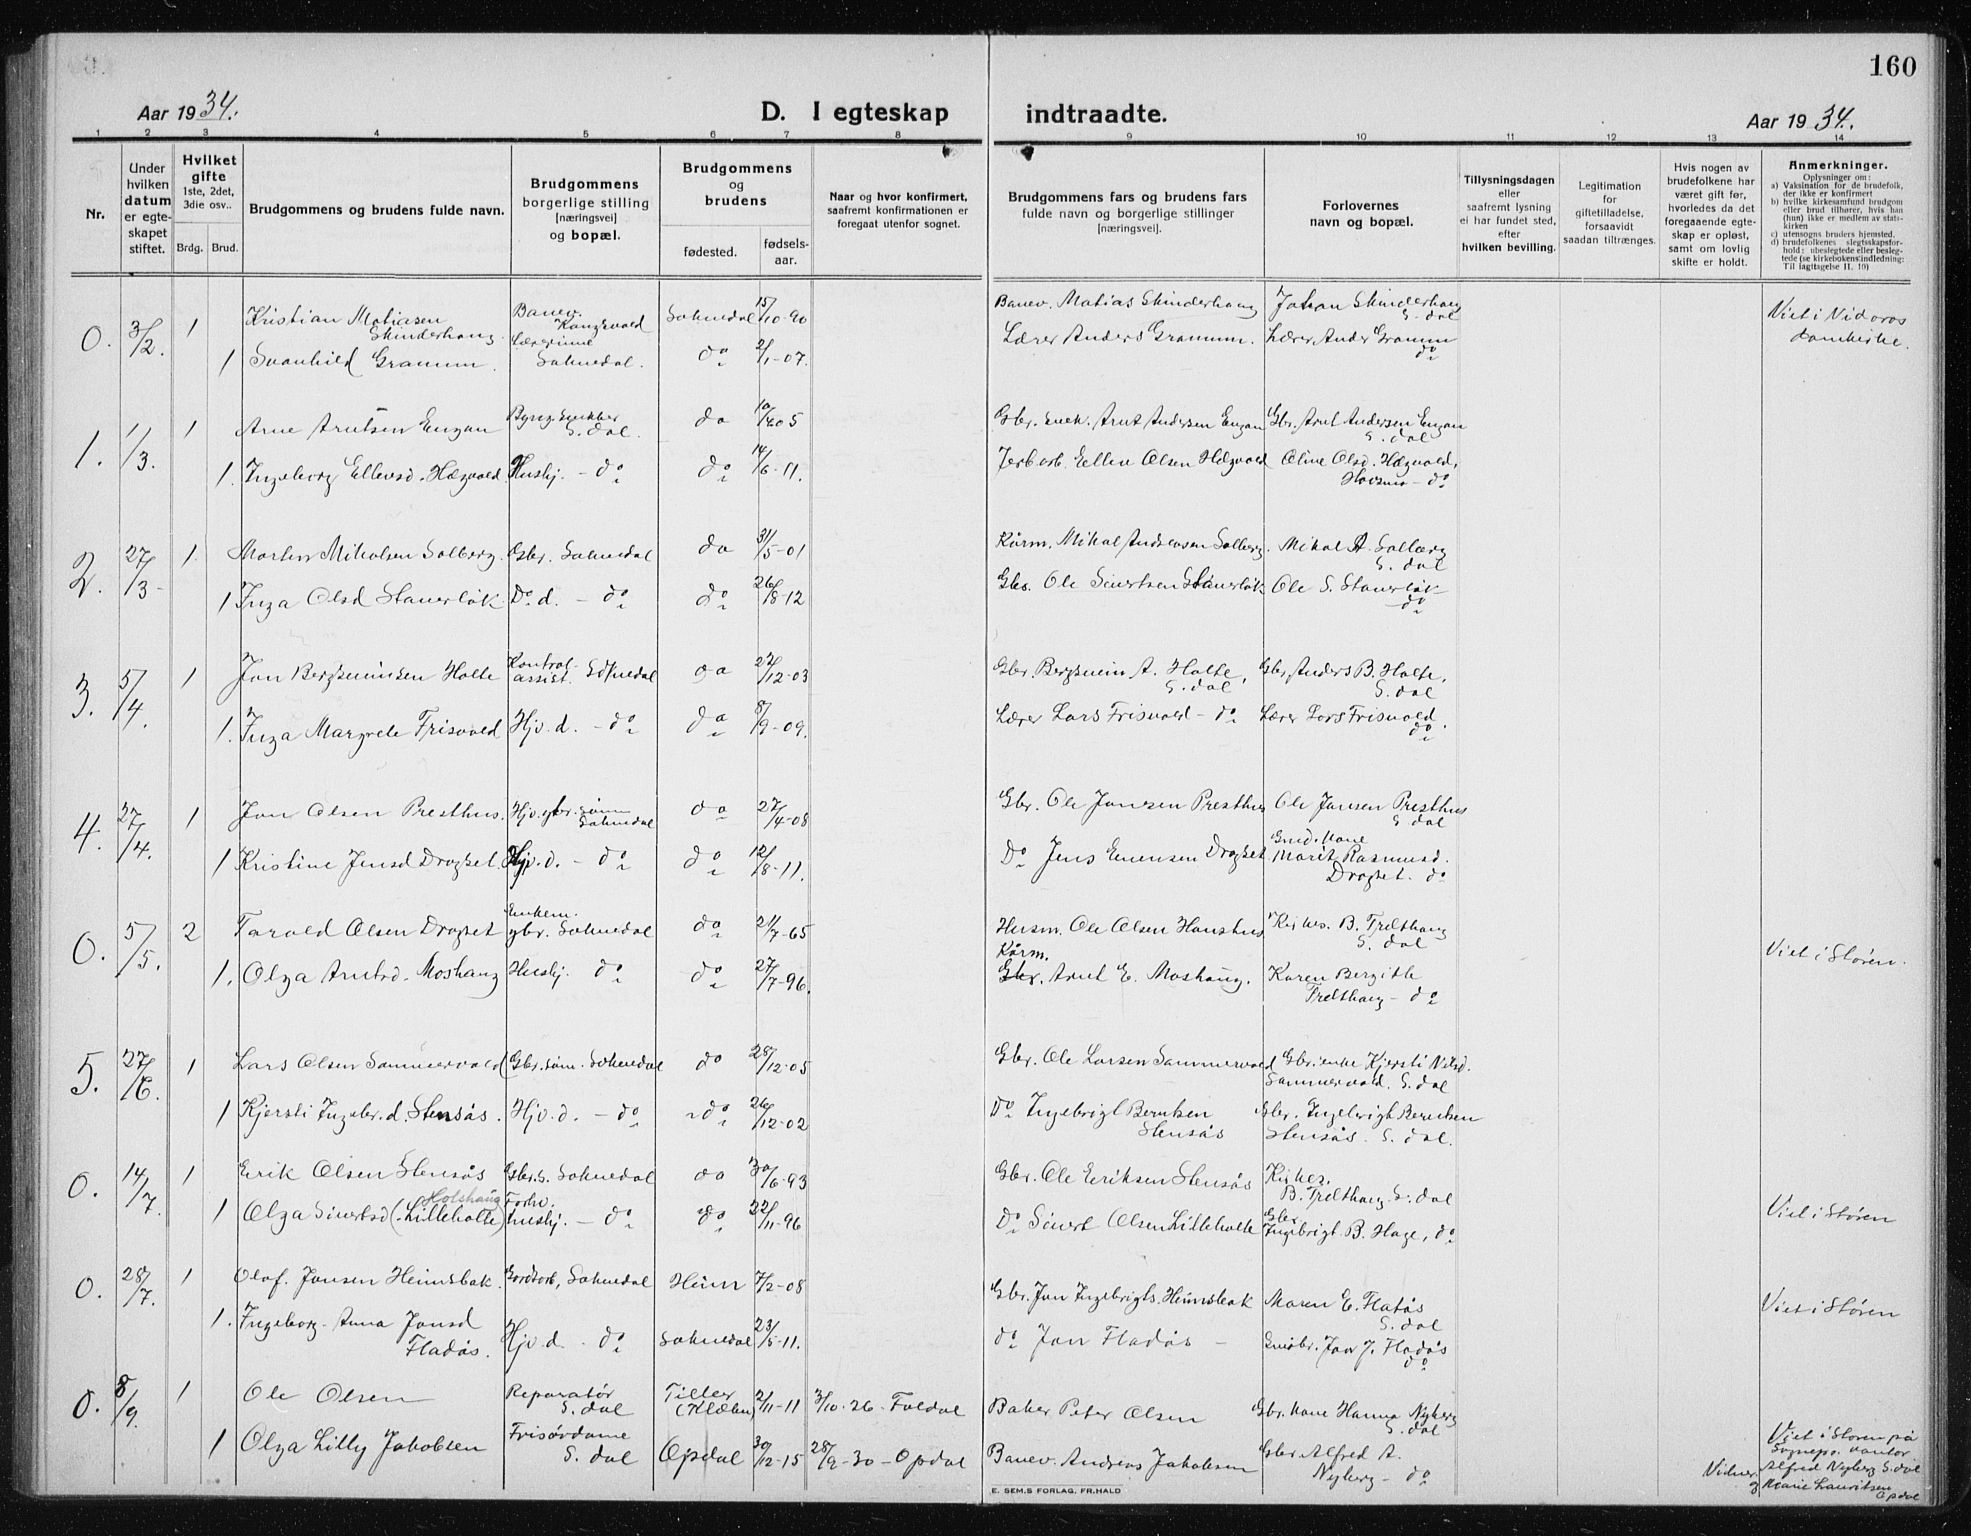 160
Aar 1934.
D. I egteskap indtraadte.
Aar 1934.
1 2 3 4 5 6 7 8 9 10 11 12 13 14
Nr.
Under hvilken datum er egteskapet stiftet.
Hvilket gifte
1ste, 2det, 3die osv..
Brdg. Brud.
Brudgommens og brudens fulde navn.
Brudgommens borgerlige stilling [næringsvei] og bopæl.
Brudgommens og brudens
fødested.
fødselsaar.
Naar og hvor konfirmert, saafremt konfirmationen er foregaat utenfor sognet.
Brudgommens fars og brudens fars fulde navn og borgerlige stillinger [næringsvei].
Forlovernes navn og bopæl.
Tillysningsdagen eller saafremt lysning ei har fundet sted, efter hvilken bevilling.
Legitimation for giftetilladelse, forsaavidt saadan tiltrænges.
Hvis nogen av brudefolkene har været gift før, hvorledes da det foregaaende egteskap er opløst, samt om lovlig skifte er holdt.
Anmerkninger.
Oplysninger om:
a) Vaksination for de brudefolk, der ikke er konfirmert
b) hvilke kirkesamfund brudgom eller brud tilhører, hvis han (hun) ikke er medlem av statskirken
c) utensogns bruders hjemsted.
d) brudefolkenes slegtsskapsforhold; ubeslegtede eller beslegtede (se kirkebokens indledning: Til iagttagelse II. 10)
0. 3/2. 1 Kristian Matiasen Skinderhaug Banev. Kongsvold Soknedal 15/10-90 Banev. Matias Skinderhaug Johan Skinderhaug S. dal Viet i Nidaros domkirke.
1 Svanhild Gramm. Lærerinne Soknedal. do 2/1-07. Lærer Anders Gramm. Lærer Anders Gramm do
1. 1/3. 1 Arne Arntsen Engan S. dal. do 10/4 05 Gbr. Arnt Andersen Engan Gbr. Arnt Andersen Engan S. dal
1. Ingeborg Ellevsd. Hægvold Hushj. - do do 14/6-11. Jerb.arb. Ellev Olsen Hægvold Oline Olsd. Hægvold, do
2. 27/3- 1. Morten Mikalsen Solberg. Gbr. Soknedal do 31/5-01 Kårm. Mikal Andersen Solberg. Mikal A. Solberg S. dal
1 Inga Olsd Staverløk Do. d. - do do 26/8-12 Gbr. Ole Sivertsen Staverløk Ole S. Staverløk do
3. 5/4. 1 Jon Bergsveinsen Holte Kontrol-assist. Soknedal do 22/12-03 Gbr. Bergsvein A. Holte, S. dal Gbr. Anders B. Holte, S. dal
1. Inga Margrete Frisvold Hjv. d. - do do 8/9-09. Lærer Lars Frisvold - do Lærer Lars Frisvold. do
4. 27/4. 1 Jon Olsen Presthus. Hjv. gbr. sønn Soknedal do 27/4-08 Gbr. Ole Jonsen Presthus Ole Jonsen Presthus S. dal
1 Kristine Jensd Dragset Hjv. d. - do do 12/8-11. Do Jens Evensen Dragset Marit Rasmusd. Dragset. do
0. 5/5. 2 Tarald Olsen Dragset Enkem. gbr. Soknedal do 21/7-65 Husm. Ole Olsen Hanshus Kirkes. B. Frelthaug S. dal Viet i Støren.
1. Olga Arntsd. Moshaug Hushj. do do 27/7-96. Kårm. Gbr. Arnt E. Moshaug. Karen Bergitte Frelthaug - do
5. 27/6. 1 Lars Olsen Sammervold Gbr. søn. Soknedal do 28/12-05 Gbr. Ole Larsen Sammervold Gbr. enke Kjersti Nilsd. Sammervold. S. dal
1 Kjersti Ingebr. d. Stensås. Hjv. d. - do do 26/12-02 Do Ingebrigt Berntsen Stensås Gbr. Ingebrigt Berntsen Stensås. S. dal.
0. 14/7. 1 Erik Olsen Stensås Gbr. s. Soknedal do 30/6-93 Gbr. Ole Eriksen Stensås Kirkes. B. Frelthaug. S. dal Viet i Støren
1 Olga Sivertsd (Lilleholte) Holshaug Forhv. hushj. - do do 22/11-96 Do Sivert Olsen Lilleholte Gbr. Ingebrigt B. Hage, do
0. 28/7. 1 Olaf. Jonsen Heimsbak. Gordarb, Soknedal Heim 7/2-08 Gbr. Jon Ingebrigts. Heimsbak Maren E. Fladås S. dal Viet i Støren
1. Ingeborg Anna Jonsd Fladås. Hjv. d. - do Soknedal 23/5-11. do Jon Fladås - Jon J. Fladås do
0. 8/9. 1 Ole Olsen Reparatør S. dal Tiller (Klæbu) 2/11-11 3/10.26 - Foldal Baker Peter Olsen Gbr. kone Hanna Nyberg S. dal
1 Olga Lilly Jakobsen Frisørdame S. dal Opdal 30/12-15 28/9-30 - Opdal Banev. Andreas Jakobsen Gbr. Alfred A. Nyberg - do
Viet i Støren på
Sognepr. kontor
Vidner. Alfred Nyberg S. dal
og Marie Lauritsen
Opdal
E. SEM.S FORLAG, FR.HALD